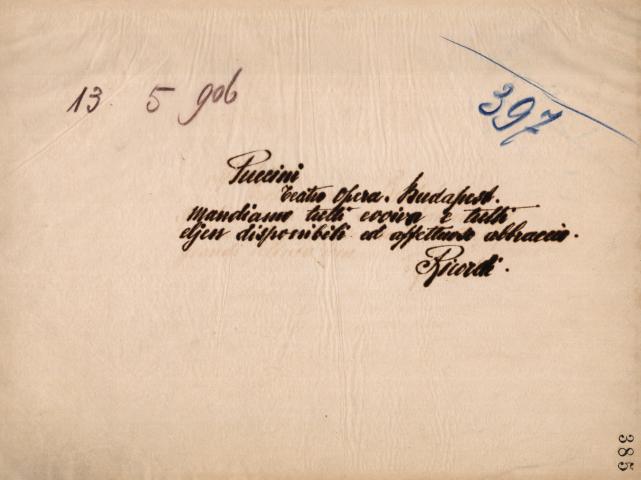 13 5 906
397
Puccini
Teatro Opera. Budapest.
Mandiamo tutti evviva e tutti
eljen disponibili ed affettuoso abbraccio.
Ricordi.
385